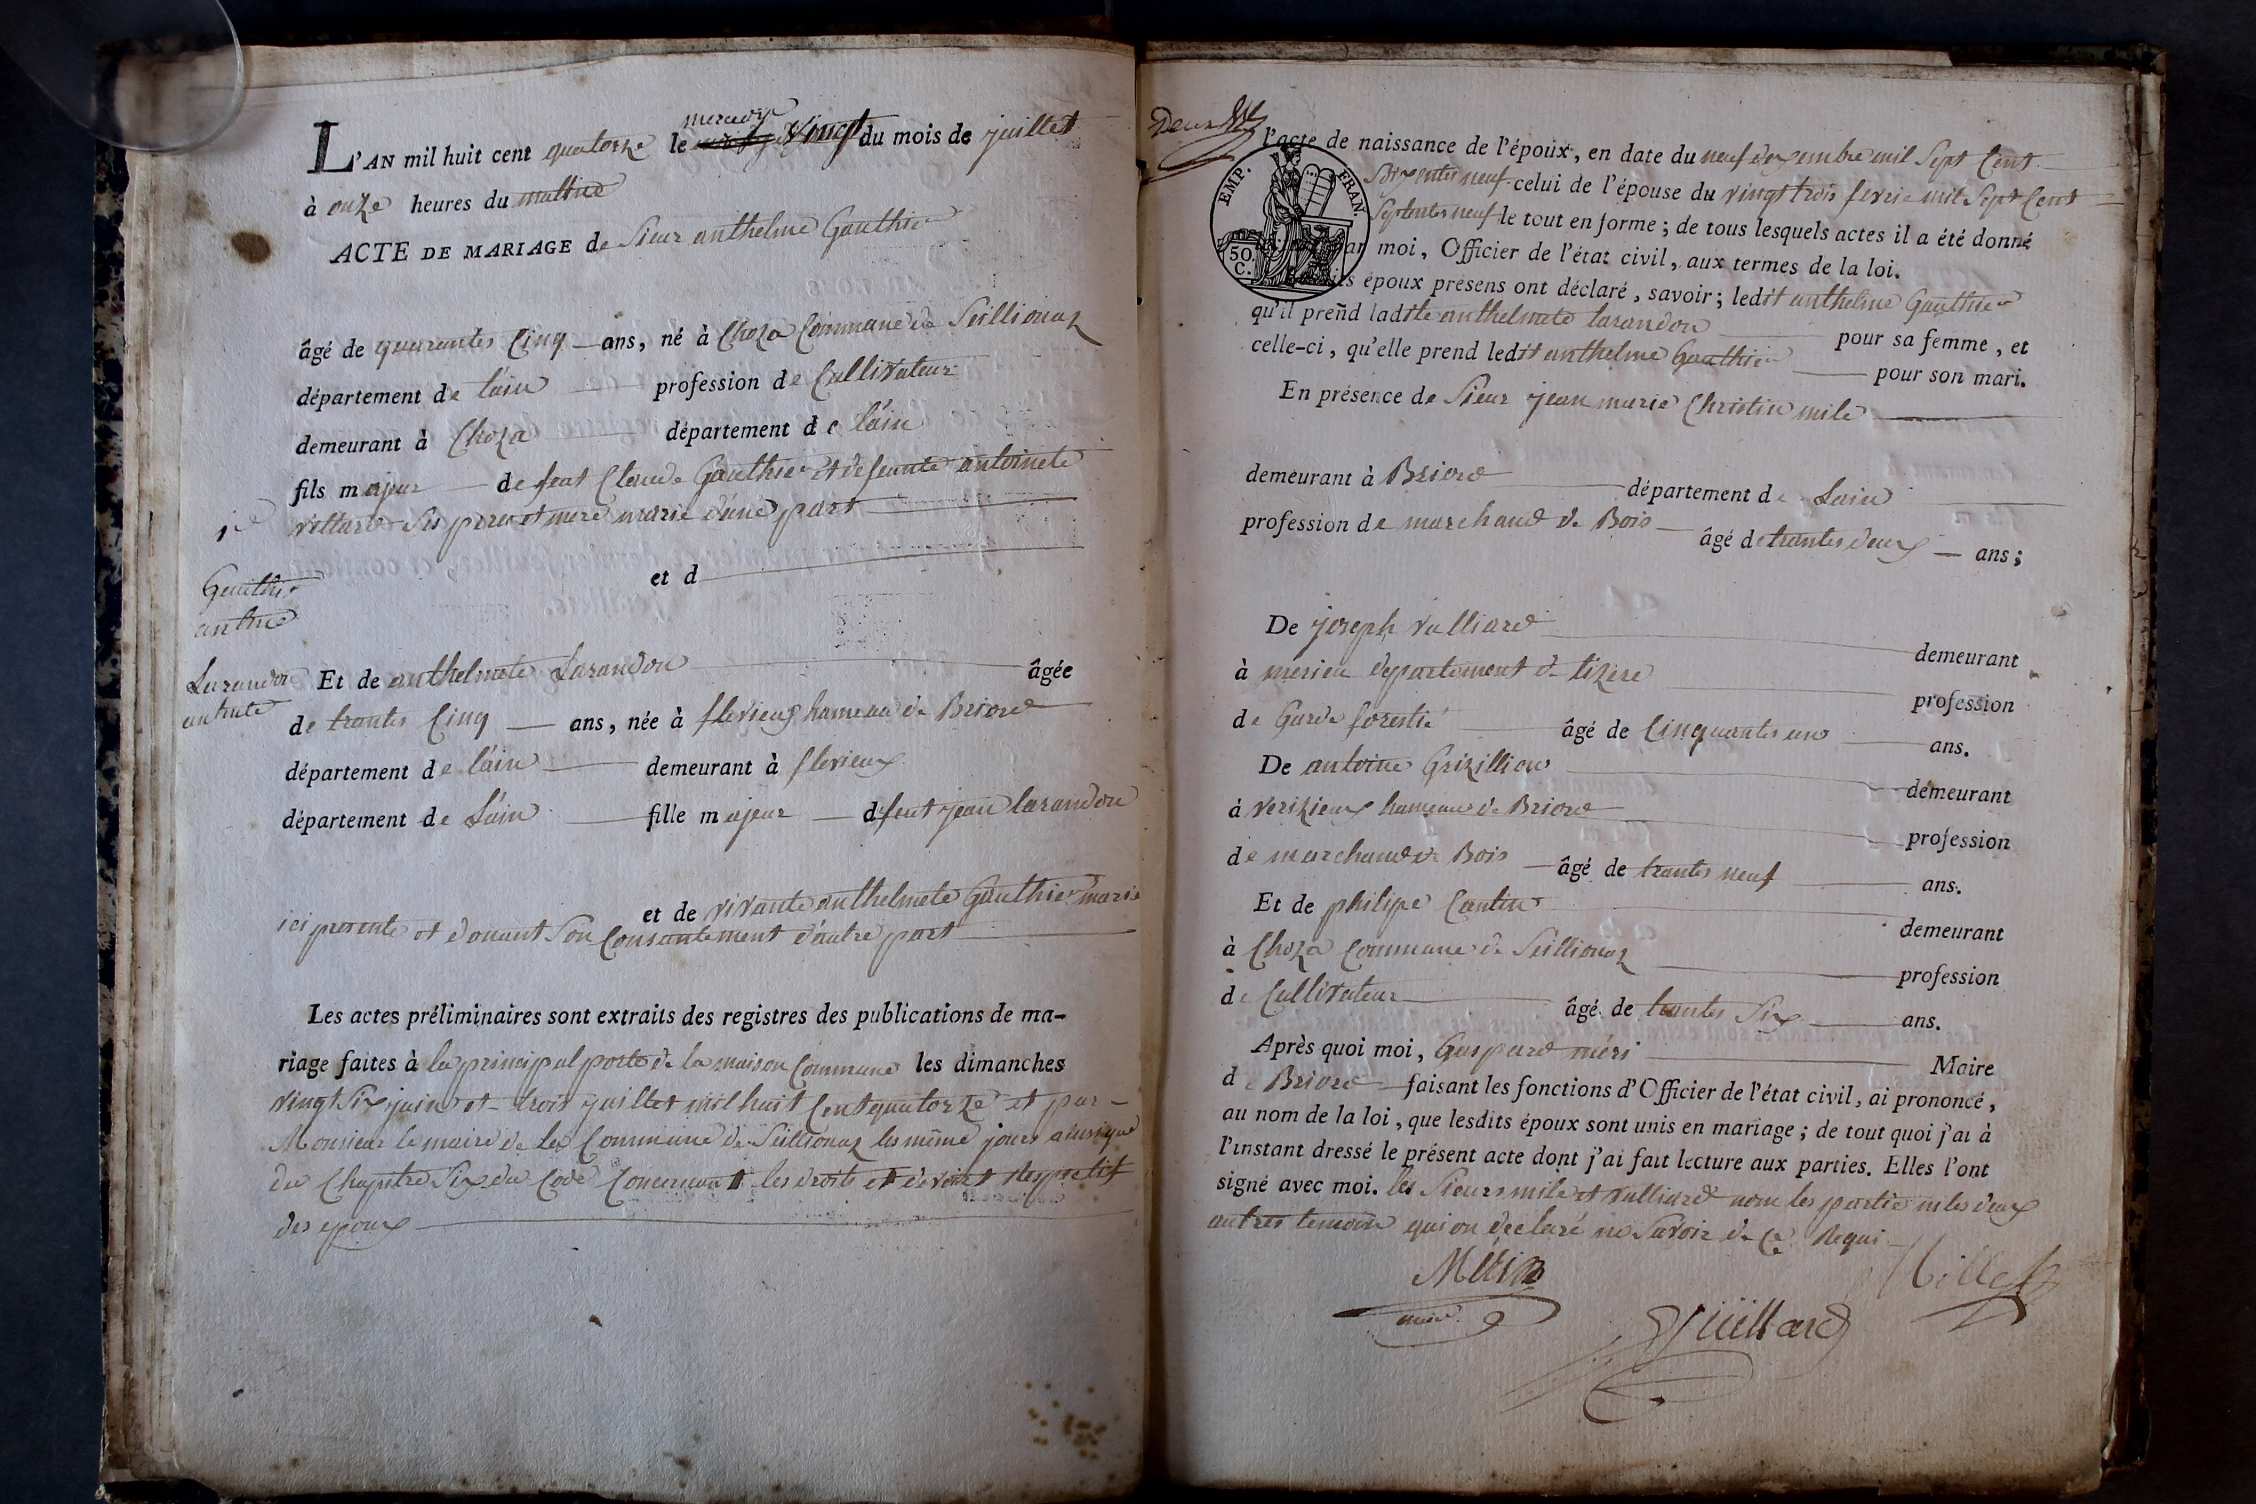 L'AN mil huit cent quatorze le mercredy vingt du mois de juillet
à onze heures du mattin
ACTE DE MARIAGE de Sieur anthelme Gauthier
âgé de quarantes Cinq ans, né à Choza Commune de Seillionaz
département de l'ain profession de Cultivateur
demeurant à Choza département de l'ain
fils majeur de feut Claude Gauthier et de feunte antoinete
ses pere et mere marié d'une part
1e
et d
Gauthier
Larandon
Et de anthelmete Larandon âgée
de trantes Cinq ans, née à flevieux hameau de Briord
département de l'ain demeurant à flevieux
département de L'ain fille majeur de feut jean Larandon
et de vivante anthelmete Gauthier marié
ici presente et donant Son Consantement d'autre part
Les actes préliminaires sont extraits des registres des publications de ma-
riage faites à la principal porte de la maison Commune les dimanches
vingt Six juin et trois juillet mil huit Cent quatorze et par
Monsieur le maire de la Commune de Seillionaz les même jours ainsi que
du Chapitre Six du Code Concernant les droits et devoirs Respectif
des epoux
Deux
l'acte de naissance de l'époux, en date du neuf dexembre mil Sept Cent
Soixentes neuf celui de l'épouse du vingt trois fevrie mil Sept Cent
Septentes neuf le tout en forme; de tous lesquels actes il a été donné
EMP. FRAN.
50. C.
moi, Officier de l'état civil, aux termes de la loi.
époux présens ont déclaré, savoir; ledit anthelme Gauthier
qu'il prend ladite anthelmete Larandon pour sa femme, et
celle-ci, qu'elle prend ledit anthelme Gauthier pour son mari.
En présence de Sieur jean marie Christin mile
demeurant à Briord département de Lain
profession de marchand de Bois âgé de trantes deux ans;
De joseph vulliard demeurant
à merieu departement de lizere profession
de Garde forestié âgé de Cinquantes un ans.
De antoine Grizillion demeurant
à verizieux hameau de Briord profession
de marchand de Bois âgé de trantes neuf ans.
Et de philipe Cantin demeurant
à Choza Commune de Seillionaz profession
de Cultivateur âgé de trantes Six ans.
Après quoi moi, Gaspard méri Maire
de Briord faisant les fonctions d'Officier de l'état civil, ai prononcé,
au nom de la loi, que lesdits époux sont unis en mariage; de tout quoi j'ai à
l'instant dressé le présent acte dont j'ai fait lecture aux parties. Elles l'ont
signé avec moi. les Sieurs mile et vulliard nom les partie ni les deux
autres temoin qui on declaré ne Savoir de Ce Requi